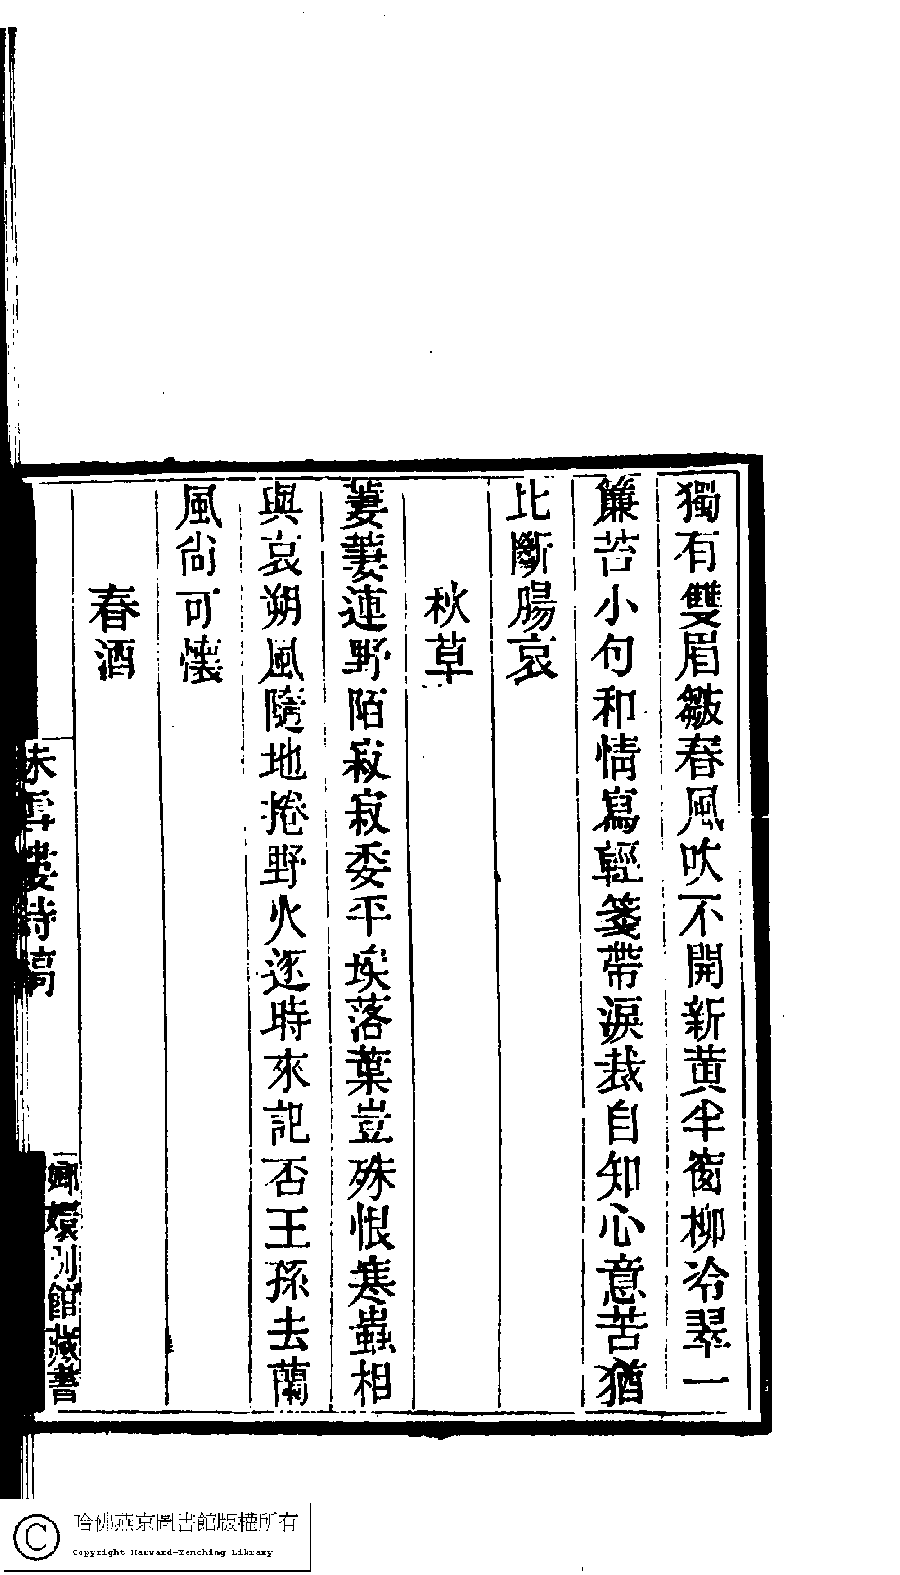 獨有雙眉皺春風吹不開新黃半窗柳冷翠一
簾苔小句和情寫輕箋帶淚裁自知心意苦猶
比斷腸哀
秋草
萋萋連野陌寂寂委平埃落葉豈殊恨寒蟲相
與哀朔風隨地捲野火逐時來記否王孫去蘭
風尚可懷
春酒
雪樓詩稿
嫏嬛別館藏書
哈佛燕京圖書館版權所有
Copyright Harvard-Yenching Library